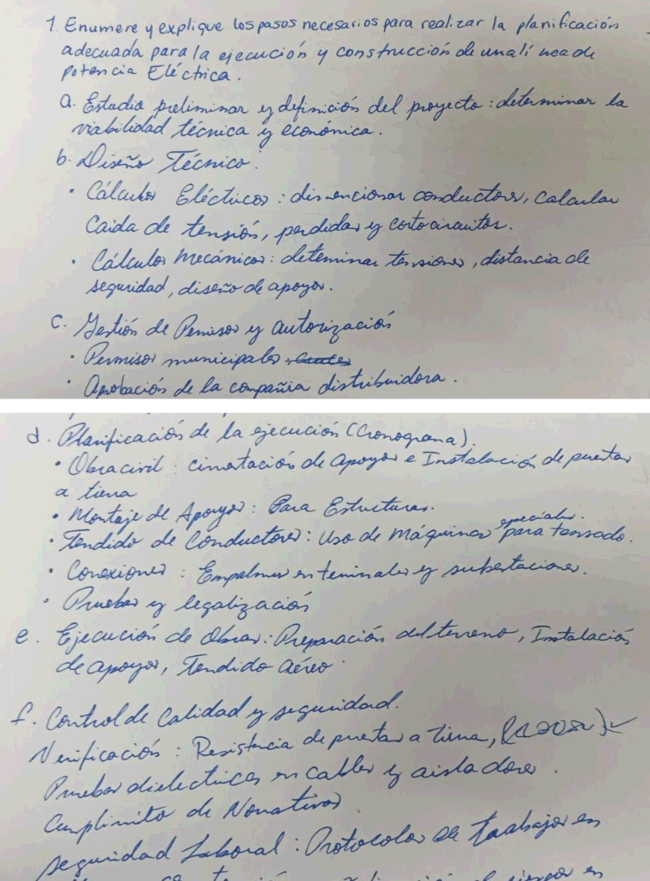 1. Enumere y explique los pasos necesarios para realizar la planificación
adecuada para la ejecución y construcción de una línea de
potencia Eléctrica.
a. Estudio preliminar y definición del proyecto: determinar la
viabilidad técnica y económica.
b. Diseño Técnico:
• Cálculos Eléctricos: dimencionar conductores, calcular
caída de tensión, perdidas y cortocircuitos.
• Cálculos Mecánicos: determinar tensiones, distancia de
seguridad, diseño de apoyos.
C. Gestión de Permisos y autorización
• Permisos municipales
• Aprobación de la compañia distribuidora.
d. Planificación de la ejecución (Cronograma).
• Obra civil: cimentación de apoyos e Instalación de puestas
a tierra
• Montaje de Apoyos: Para Estructuras.
• Tendido de Conductores: Uso de Máquinas especiales para tensado.
• Conexiones: Empalmes en terminales y subestaciones.
• Pruebas y legalización
e. Ejecución de Obras: Preparación del terreno, Instalación
de apoyos, Tendido Aéreo.
f. Control de Calidad y seguridad.
Verificación: Resistencia de puestas a tierra,
Pruebas dielectricas en cables y aisladores.
Cumplimito de Normativas
seguridad Laboral: Protocolos de trabajos en